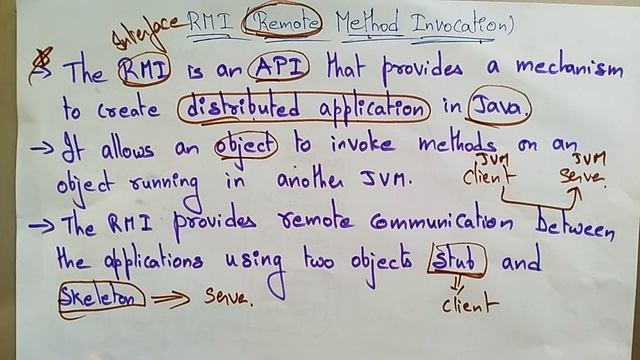 Interface RMI (Remote Method Invocation)
→ The RMI is an API that provides a mechanism
to create distributed application in Java.
→ It allows an object to invoke methods on an
object running in another JVM.
JVM JVM
client serve.
→ The RMI provides remote communication between
the applications using two objects stub and
skeleton ⇒ serve.
client